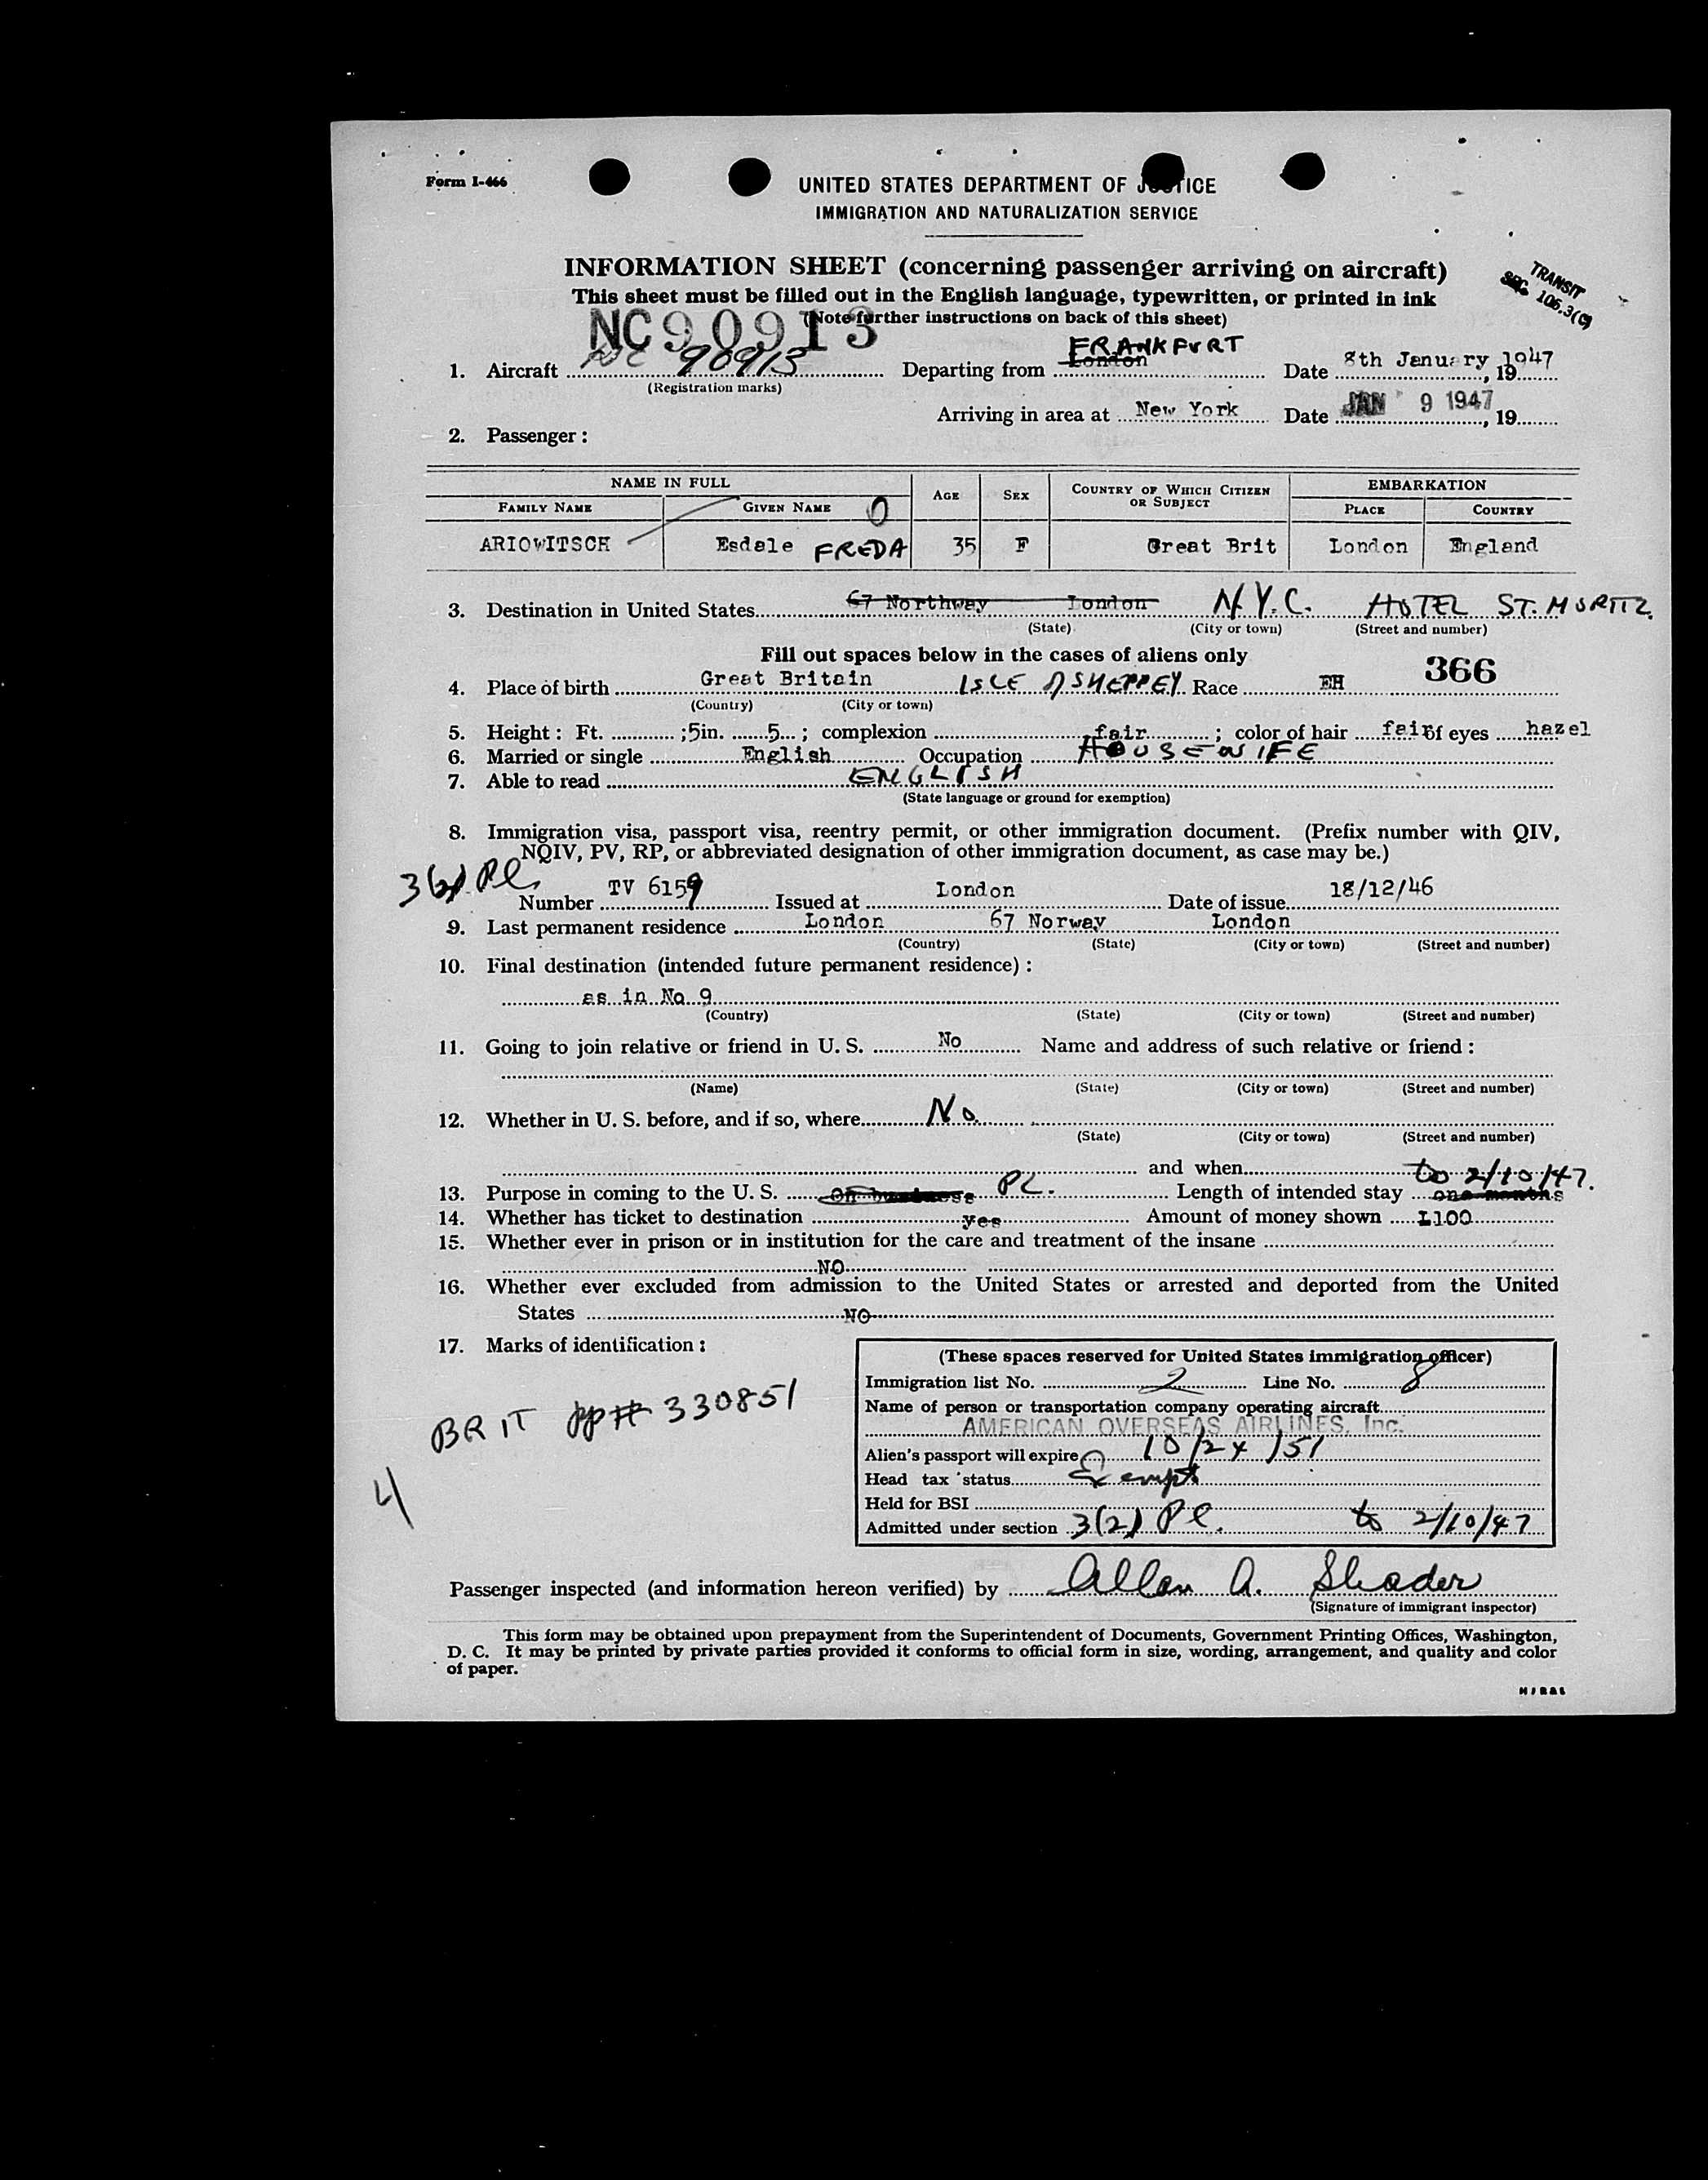 Form I-466
UNITED STATES DEPARTMENT OF JUSTICE
IMMIGRATION AND NATURALIZATION SERVICE
INFORMATION SHEET (concerning passenger arriving on aircraft)
TRANSIT
SEC. 105.3(C)
This sheet must be filled out in the English language, typewritten, or printed in ink
(Note further instructions on back of this sheet)
NC90913
FRANKFURT
1. Aircraft NC 90913 Departing from London Date 8th January, 1947
(Registration marks)
Arriving in area at New York Date JAN 9 1947, 19
2. Passenger:
NAME IN FULL AGE SEX COUNTRY OF WHICH CITIZEN OR SUBJECT EMBARKATION
FAMILY NAME GIVEN NAME PLACE COUNTRY
ARIOWITSCH Esdale FREDA 35 F Great Brit London England
3. Destination in United States 67 Northway London N.Y.C. HOTEL ST. MORITZ.
(State) (City or town) (Street and number)
Fill out spaces below in the cases of aliens only
366
4. Place of birth Great Britain ISLE SHEPPEY Race EH
(Country) (City or town)
5. Height: Ft. ;5in. 5 ; complexion fair ; color of hair fair of eyes hazel
6. Married or single English Occupation HOUSEWIFE
7. Able to read ENGLISH
(State language or ground for exemption)
8. Immigration visa, passport visa, reentry permit, or other immigration document. (Prefix number with QIV,
NQIV, PV, RP, or abbreviated designation of other immigration document, as case may be.)
3(2) Pl.
Number TV 6159 Issued at London Date of issue 18/12/46
9. Last permanent residence London 67 Norway London
(Country) (State) (City or town) (Street and number)
10. Final destination (intended future permanent residence):
as in No 9
(Country) (State) (City or town) (Street and number)
11. Going to join relative or friend in U. S. No Name and address of such relative or friend:
(Name) (State) (City or town) (Street and number)
12. Whether in U. S. before, and if so, where No.
(State) (City or town) (Street and number)
and when to 2/10/47.
13. Purpose in coming to the U. S. On business PL. Length of intended stay one months
14. Whether has ticket to destination yes Amount of money shown £100
15. Whether ever in prison or in institution for the care and treatment of the insane
NO
16. Whether ever excluded from admission to the United States or arrested and deported from the United
States NO
17. Marks of identification:
BRIT PP# 330851
4
(These spaces reserved for United States immigration officer)
Immigration list No. 2 Line No. 8
Name of person or transportation company operating aircraft
AMERICAN OVERSEAS AIRLINES, Inc.
Alien's passport will expire 10/24/51
Head tax status Exempt
Held for BSI
Admitted under section 3(2) Pl. to 2/10/47
Passenger inspected (and information hereon verified) by Allan A. Shader
(Signature of immigrant inspector)
This form may be obtained upon prepayment from the Superintendent of Documents, Government Printing Offices, Washington,
D. C. It may be printed by private parties provided it conforms to official form in size, wording, arrangement, and quality and color
of paper.